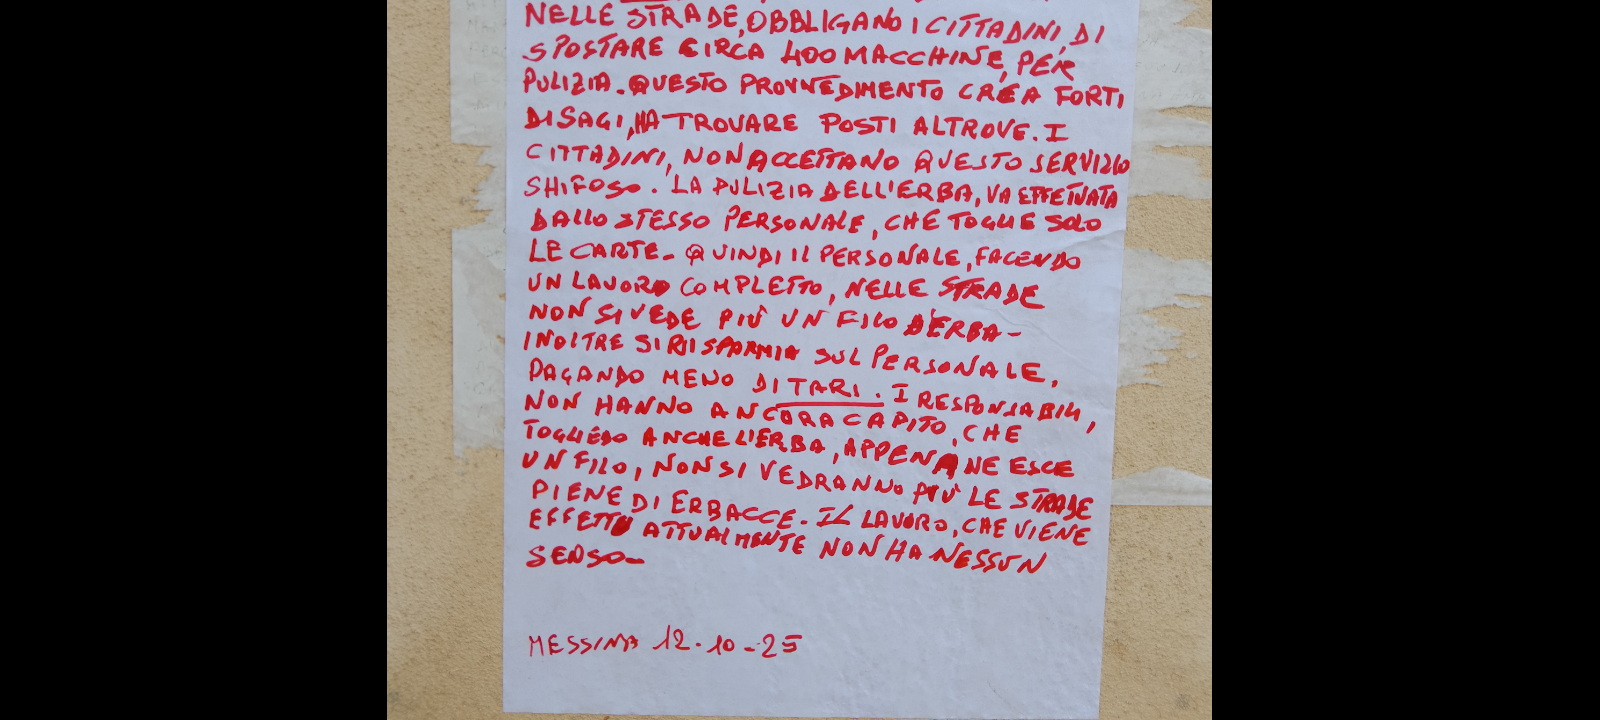 NELLE STRADE, OBBLIGANO I CITTADINI, DI
SPOSTARE CIRCA 400 MACCHINE, PER
PULIZIA. QUESTO PROVVEDIMENTO CREA FORTI
DISAGI, HA TROVARE POSTI ALTROVE. I
CITTADINI, NON ACCETTANO QUESTO SERVIZIO
SHIFOSO. LA PULIZIA DELL'ERBA, VA EFFETUATA
DALLO STESSO PERSONALE, CHE TOGLIE SOLO
LE CARTE- QUINDI IL PERSONALE, FACENDO
UN LAVORO COMPLETTO, NELLE STRADE
NON SI VEDE PIÙ UN FILO D'ERBA-
INOLTRE SI RISPARMIA SUL PERSONALE,
PAGANDO MENO DI TARI. I RESPONSABILI,
NON HANNO ANCORA CAPITO, CHE
TOGLIEDO ANCHE L'ERBA, APPENA NE ESCE
UN FILO, NON SI VEDRANNO PIÙ LE STRADE
PIENE DI ERBACCE. IL LAVORO, CHE VIENE
EFFETTU ATTUALMENTE NON HA NESSUN
SENSO-
MESSINA 12.10-25